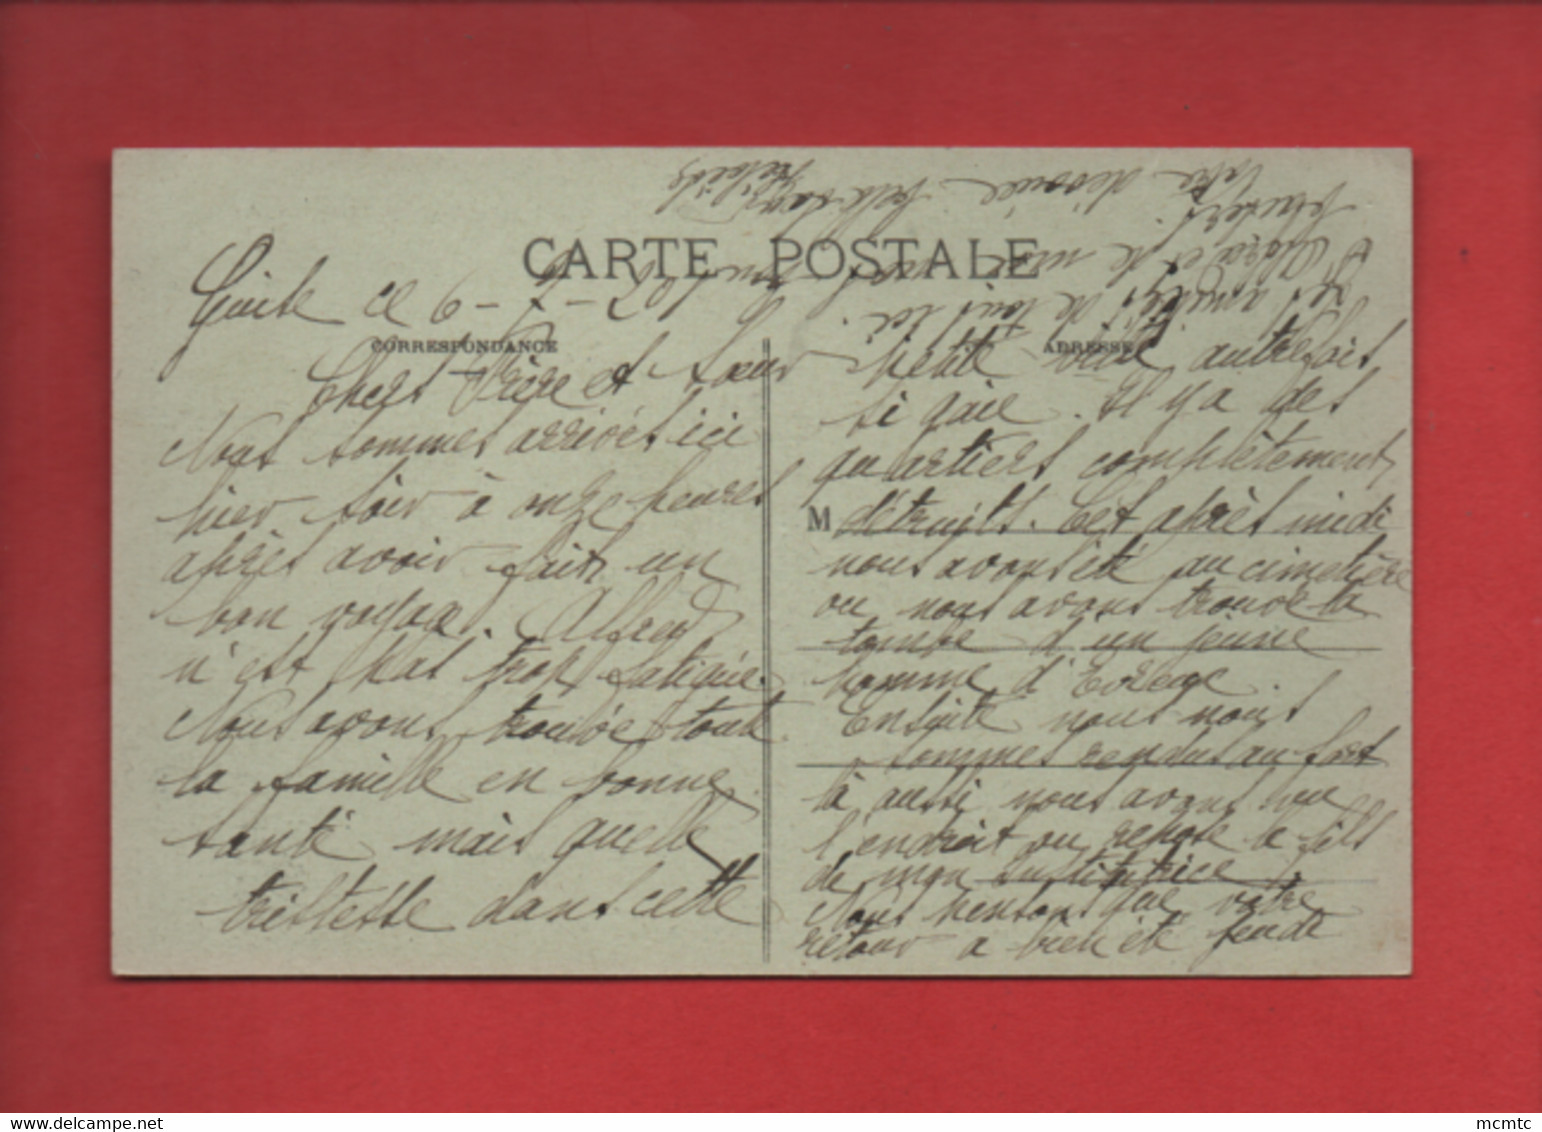 CARTE POSTALE
CORRESPONDANCE
ADRESSE
ce 6-7-20
Chers Frère et Sœur
Nous sommes arrivés ici
hier soir à onze heures
après avoir fait un
bon voyage. Alfred
n'est pas trop fatigué.
Nous avons trouvé toute
la famille en bonne
santé mais quelle
tristesse dans cette
petite ville autrefois
si gaie. Il y a des
quartiers complètement
M détruits. Cet après midi
nous avons été au cimetière
ou nous avons trouvé la
tombe d'un jeune
homme d'
Ensuite nous nous
sommes rendus au fort
là aussi nous avons vu
l'endroit ou repose le fils
de mon institutrice.
Nous pensons que votre
retour a bien été
mcmtc